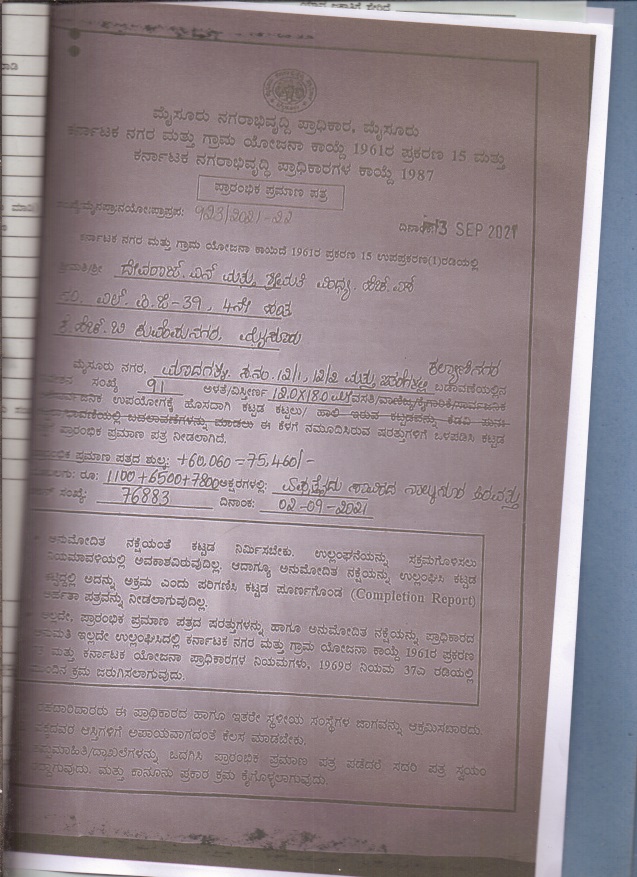 ಮೈಸೂರು ನಗರಾಭಿವೃದ್ಧಿ ಪ್ರಾಧಿಕಾರ, ಮೈಸೂರು
ಕರ್ನಾಟಕ ನಗರ ಮತ್ತು ಗ್ರಾಮ ಯೋಜನಾ ಕಾಯ್ದೆ 1961ರ ಪ್ರಕರಣ 15 ಮತ್ತು
ಕರ್ನಾಟಕ ನಗರಾಭಿವೃದ್ಧಿ ಪ್ರಾಧಿಕಾರಗಳ ಕಾಯ್ದೆ 1987
ಪ್ರಾರಂಭಿಕ ಪ್ರಮಾಣ ಪತ್ರ
923/2021-22
3 SEP 2021
ಕರ್ನಾಟಕ ನಗರ ಮತ್ತು ಗ್ರಾಮ ಯೋಜನಾ ಕಾಯಿದೆ 1961ರ ಪ್ರಕರಣ 15 ಉಪಪ್ರಕರಣ(1)ರಡಿಯಲ್ಲಿ
ಶ್ರೀಮತಿ/ಶ್ರೀ ದೇವರಾಜ್.ಎನ್ ಮತ್ತು ಶ್ರೀಮತಿ ವಿದ್ಯಾ.ಹೆಚ್.ಎಸ್
ನಂ. ಎಲ್.ಐ.ಜಿ-39, 4ನೇ ಹಂತ
ಕೆ.ಹೆಚ್.ಬಿ ಕುವೆಂಪುನಗರ, ಮೈಸೂರು
ಮೈಸೂರು ನಗರ, ಸ.ನಂ.12/1, 12/2 ಮತ್ತು ಬಡಾವಣೆಯಲ್ಲಿನ
ಸಂಖ್ಯೆ 91 ಅಳತೆ/ವಿಸ್ತೀರ್ಣ 12.0X18.0 ವಸತಿ/ವಾಣಿಜ್ಯ/ಕೈಗಾರಿಕೆ/ಸಾರ್ವಜನಿಕ
ಉಪಯೋಗಕ್ಕೆ ಹೊಸದಾಗಿ ಕಟ್ಟಡ ಕಟ್ಟಲು/ ಹಾಲಿ ಇರುವ ಕಟ್ಟಡವನ್ನು ಕೆಡವಿ ಪುನಃ
ಬದಲಾವಣೆಗಳನ್ನು ಮಾಡಲು ಈ ಕೆಳಗೆ ನಮೂದಿಸಿರುವ ಷರತ್ತುಗಳಿಗೆ ಒಳಪಡಿಸಿ ಕಟ್ಟಡ
ಪ್ರಾರಂಭಿಕ ಪ್ರಮಾಣ ಪತ್ರ ನೀಡಲಾಗಿದೆ.
ಪ್ರಮಾಣ ಪತ್ರದ ಶುಲ್ಕ: +60,060=75,460/-
ರೂ: 1100+6500+7800 ಅಕ್ಷರಗಳಲ್ಲಿ: ಎಪ್ಪತ್ತೈದು ಸಾವಿರದ ನಾಲ್ಕುನೂರ ಅರವತ್ತು
ಸಂಖ್ಯೆ: 76883 ದಿನಾಂಕ: 02-09-2021
ಅನುಮೋದಿತ ನಕ್ಷೆಯಂತೆ ಕಟ್ಟಡ ನಿರ್ಮಿಸಬೇಕು. ಉಲ್ಲಂಘನೆಯನ್ನು ಸಕ್ರಮಗೊಳಿಸಲು
ನಿಯಮಾವಳಿಯಲ್ಲಿ ಅವಕಾಶವಿರುವುದಿಲ್ಲ. ಆದಾಗ್ಯೂ ಅನುಮೋದಿತ ನಕ್ಷೆಯನ್ನು ಉಲ್ಲಂಘಿಸಿ ಕಟ್ಟಡ
ಅದನ್ನು ಅಕ್ರಮ ಎಂದು ಪರಿಗಣಿಸಿ ಕಟ್ಟಡ ಪೂರ್ಣಗೊಂಡ (Completion Report)
ಪತ್ರವನ್ನು ನೀಡಲಾಗುವುದಿಲ್ಲ.
ಪ್ರಾರಂಭಿಕ ಪ್ರಮಾಣ ಪತ್ರದ ಷರತ್ತುಗಳನ್ನು ಹಾಗೂ ಅನುಮೋದಿತ ನಕ್ಷೆಯನ್ನು ಪ್ರಾಧಿಕಾರದ
ಇಲ್ಲದೇ ಉಲ್ಲಂಘಿಸಿದಲ್ಲಿ ಕರ್ನಾಟಕ ನಗರ ಮತ್ತು ಗ್ರಾಮ ಯೋಜನಾ ಕಾಯ್ದೆ 1961ರ ಪ್ರಕರಣ
ಮತ್ತು ಕರ್ನಾಟಕ ಯೋಜನಾ ಪ್ರಾಧಿಕಾರಗಳ ನಿಯಮಗಳು, 1969ರ ನಿಯಮ 37ಎ ರಡಿಯಲ್ಲಿ
ಕ್ರಮ ಜರುಗಿಸಲಾಗುವುದು.
ಈ ಪ್ರಾಧಿಕಾರದ ಹಾಗೂ ಇತರೇ ಸ್ಥಳೀಯ ಸಂಸ್ಥೆಗಳ ಜಾಗವನ್ನು ಆಕ್ರಮಿಸಬಾರದು.
ಆಸ್ತಿಗಳಿಗೆ ಅಪಾಯವಾಗದಂತೆ ಕೆಲಸ ಮಾಡಬೇಕು.
ಒದಗಿಸಿ ಪ್ರಾರಂಭಿಕ ಪ್ರಮಾಣ ಪತ್ರ ಪಡೆದರೆ ಸದರಿ ಪತ್ರ ಸ್ವಯಂ
ಮತ್ತು ಕಾನೂನು ಪ್ರಕಾರ ಕ್ರಮ ಕೈಗೊಳ್ಳಲಾಗುವುದು.